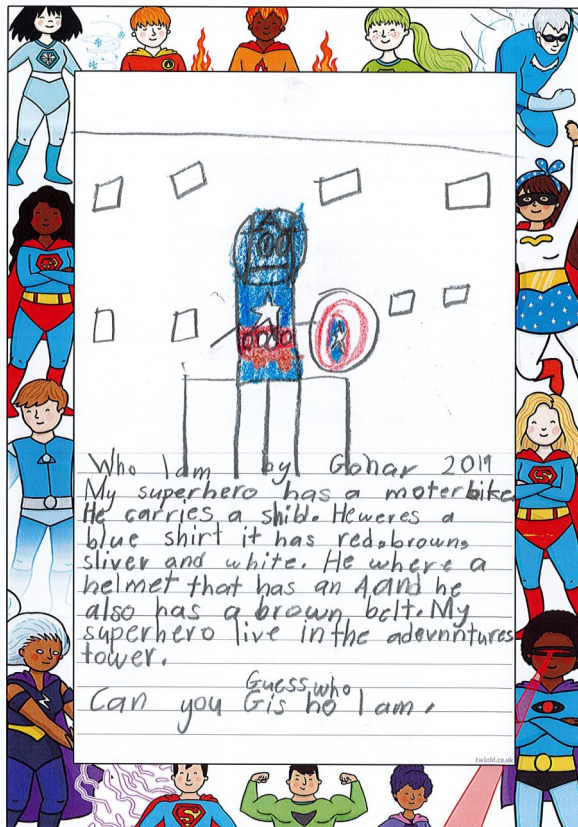 Who I am by Gohar 2019
My superhero has a moterbike
He carries a shild. Heweres a
blue shirt it has red,brown,
sliver and white. He where a
helmet that has an A and he
also has a brown belt. My
superhero live in the adevnntures
tower.
Guess who
Can you Gis ho I am.
twinkl.co.uk